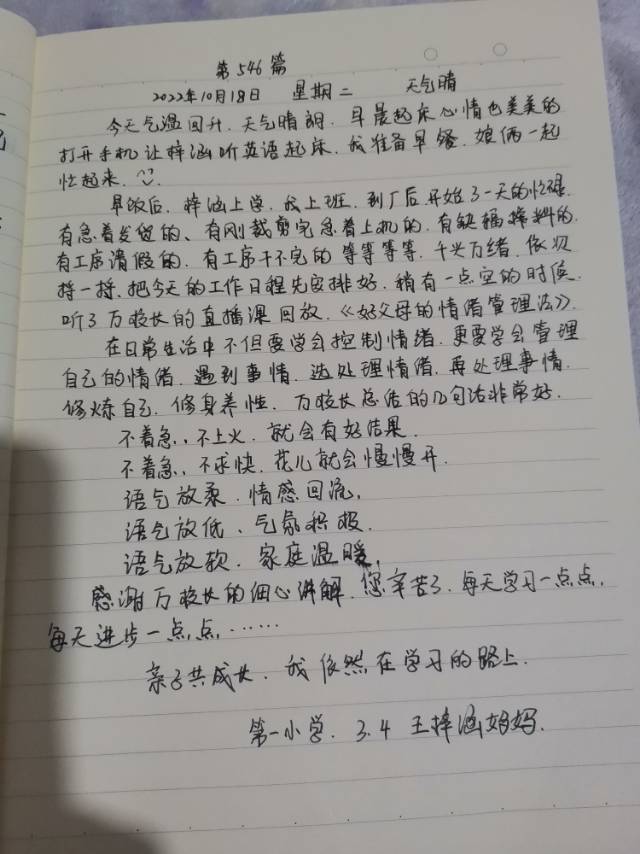 第546篇
2022年10月18日 星期二 天气晴
今天气温回升.天气晴朗.早晨起床心情也美美的
打开手机让梓涵听英语起床.我准备早餐.娘俩一起
忙起来.
早饭后.梓涵上学.我上班.到厂后开始了一天的忙碌.
有急着发货的、有刚裁剪完急着上机的.有缺辅料的.
有工序请假的.有工序干不完的等等等等.千头万绪.依次
捋一捋、把今天的工作日程先安排好.稍有一点空的时候
听了万校长的直播课回放.《好父母的情绪管理法》.
在日常生活中不但要学会控制情绪.更要学会管理
自己的情绪.遇到事情.先处理情绪.再处理事情.
修炼自己.修身养性.万校长总结的几句话非常好.
不着急、不上火.就会有好结果.
不着急、不求快.花儿就会慢慢开.
语气放柔.情感回流.
语气放低、气氛积极.
语气放软.家庭温暖.
感谢万校长的细心讲解.您辛苦了.每天学习一点点.
每天进步一点点.……
亲子共成长.我依然在学习的路上.
第一小学.3.4 王梓涵妈妈.